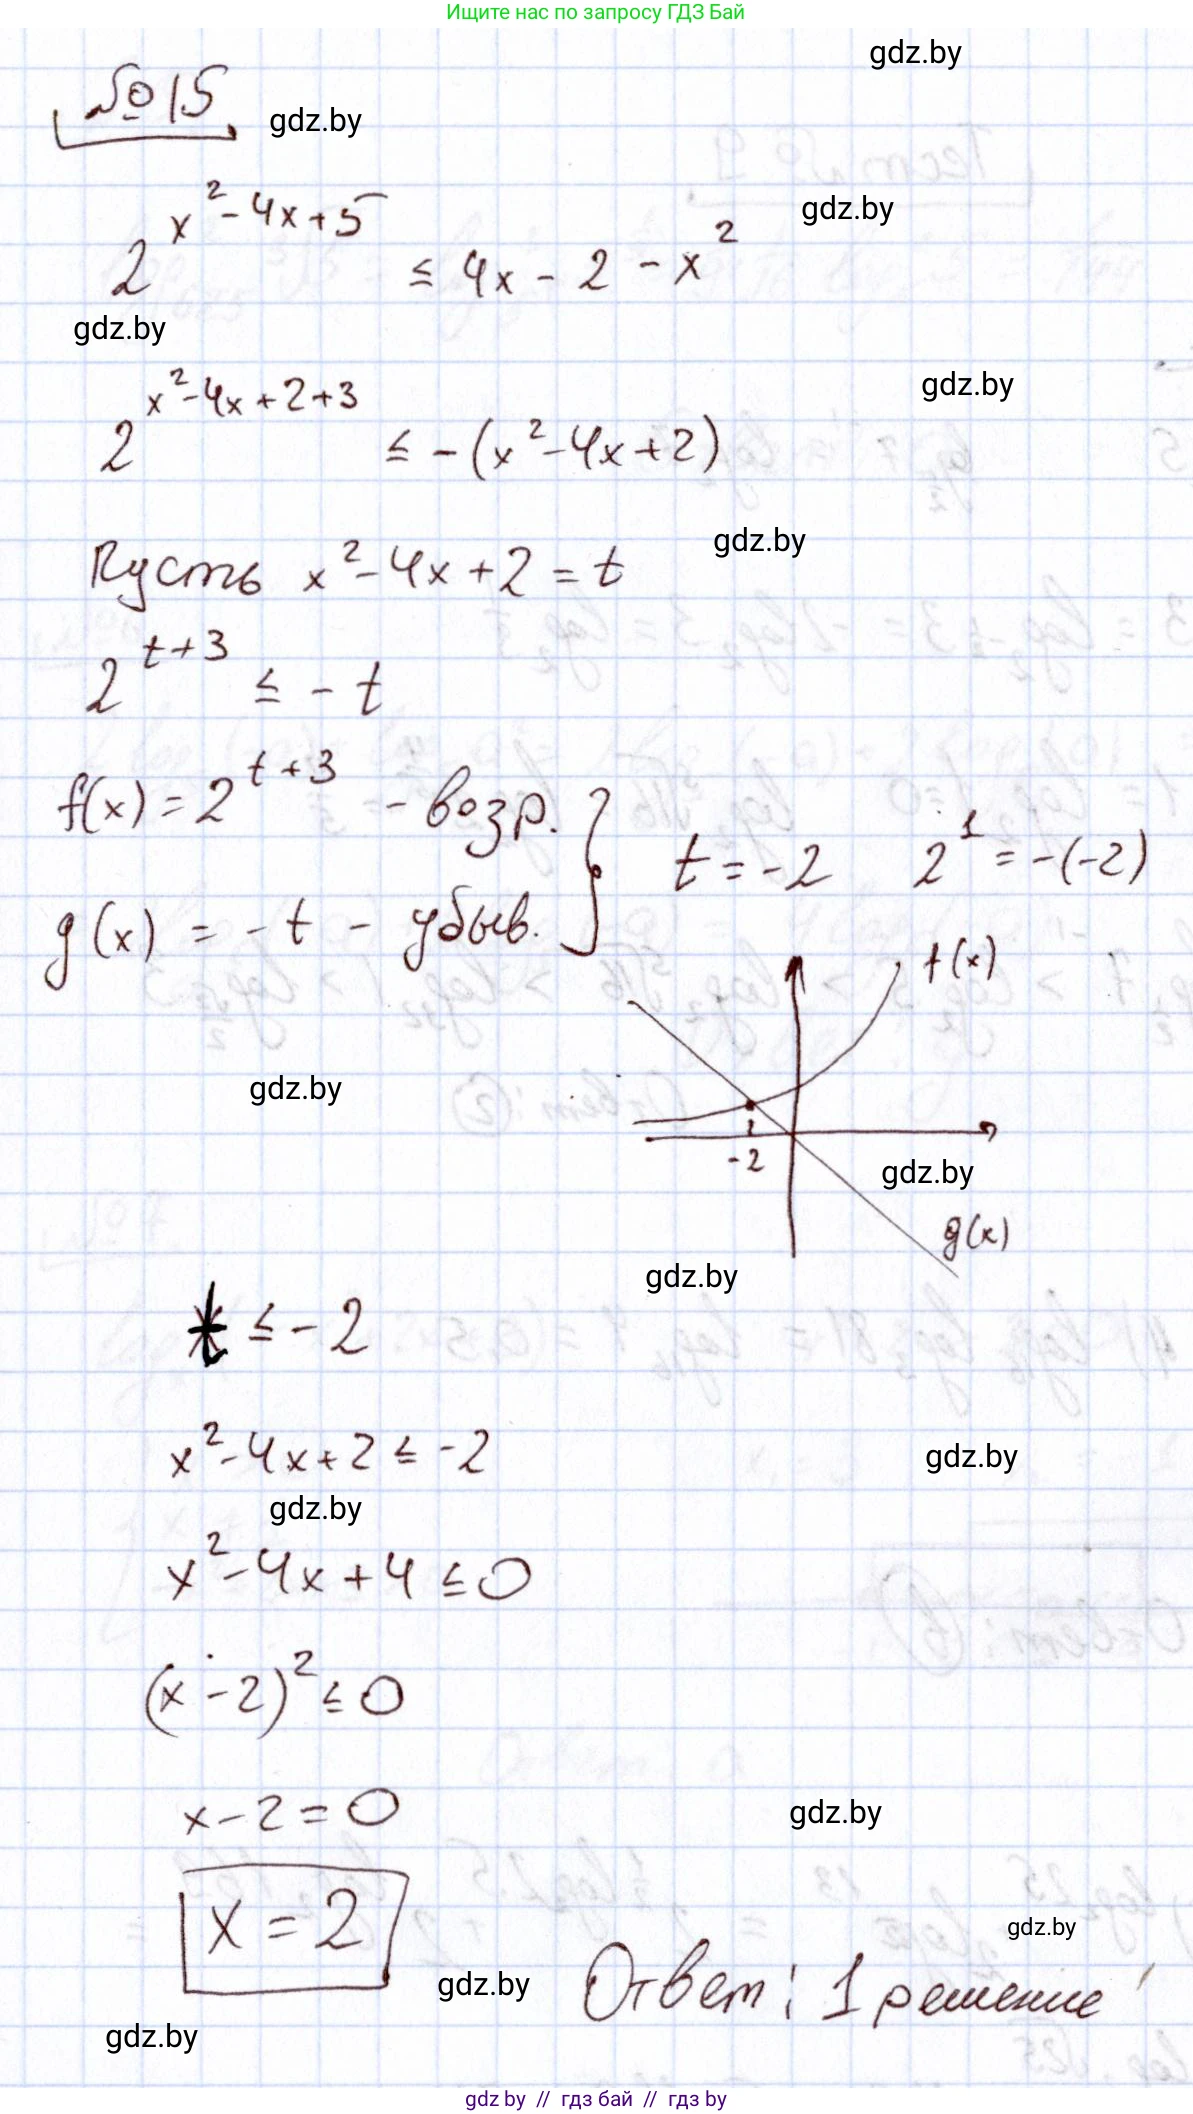 Ищите нас по запросу ГДЗ Бай
gdz.by
№ 15
gdz.by
gdz.by
2^(x²-4x+5) ≤ 4x - 2 - x²
gdz.by
gdz.by
2^(x²-4x+2+3) ≤ -(x²-4x+2)
gdz.by
Пусть x²-4x+2=t
2^(t+3) ≤ -t
f(x) = 2^(t+3) - возр.
g(x) = -t - убыв.
t = -2 2^1 = -(-2)
f(x)
gdz.by
-2
gdz.by
g(x)
gdz.by
t ≤ -2
x²-4x+2 ≤ -2
gdz.by
gdz.by
x²-4x+4 ≤ 0
(x-2)² ≤ 0
x-2=0
gdz.by
x=2
gdz.by
Ответ: 1 решение
gdz.by
gdz.by
gdz by // гдз бай // гдз by